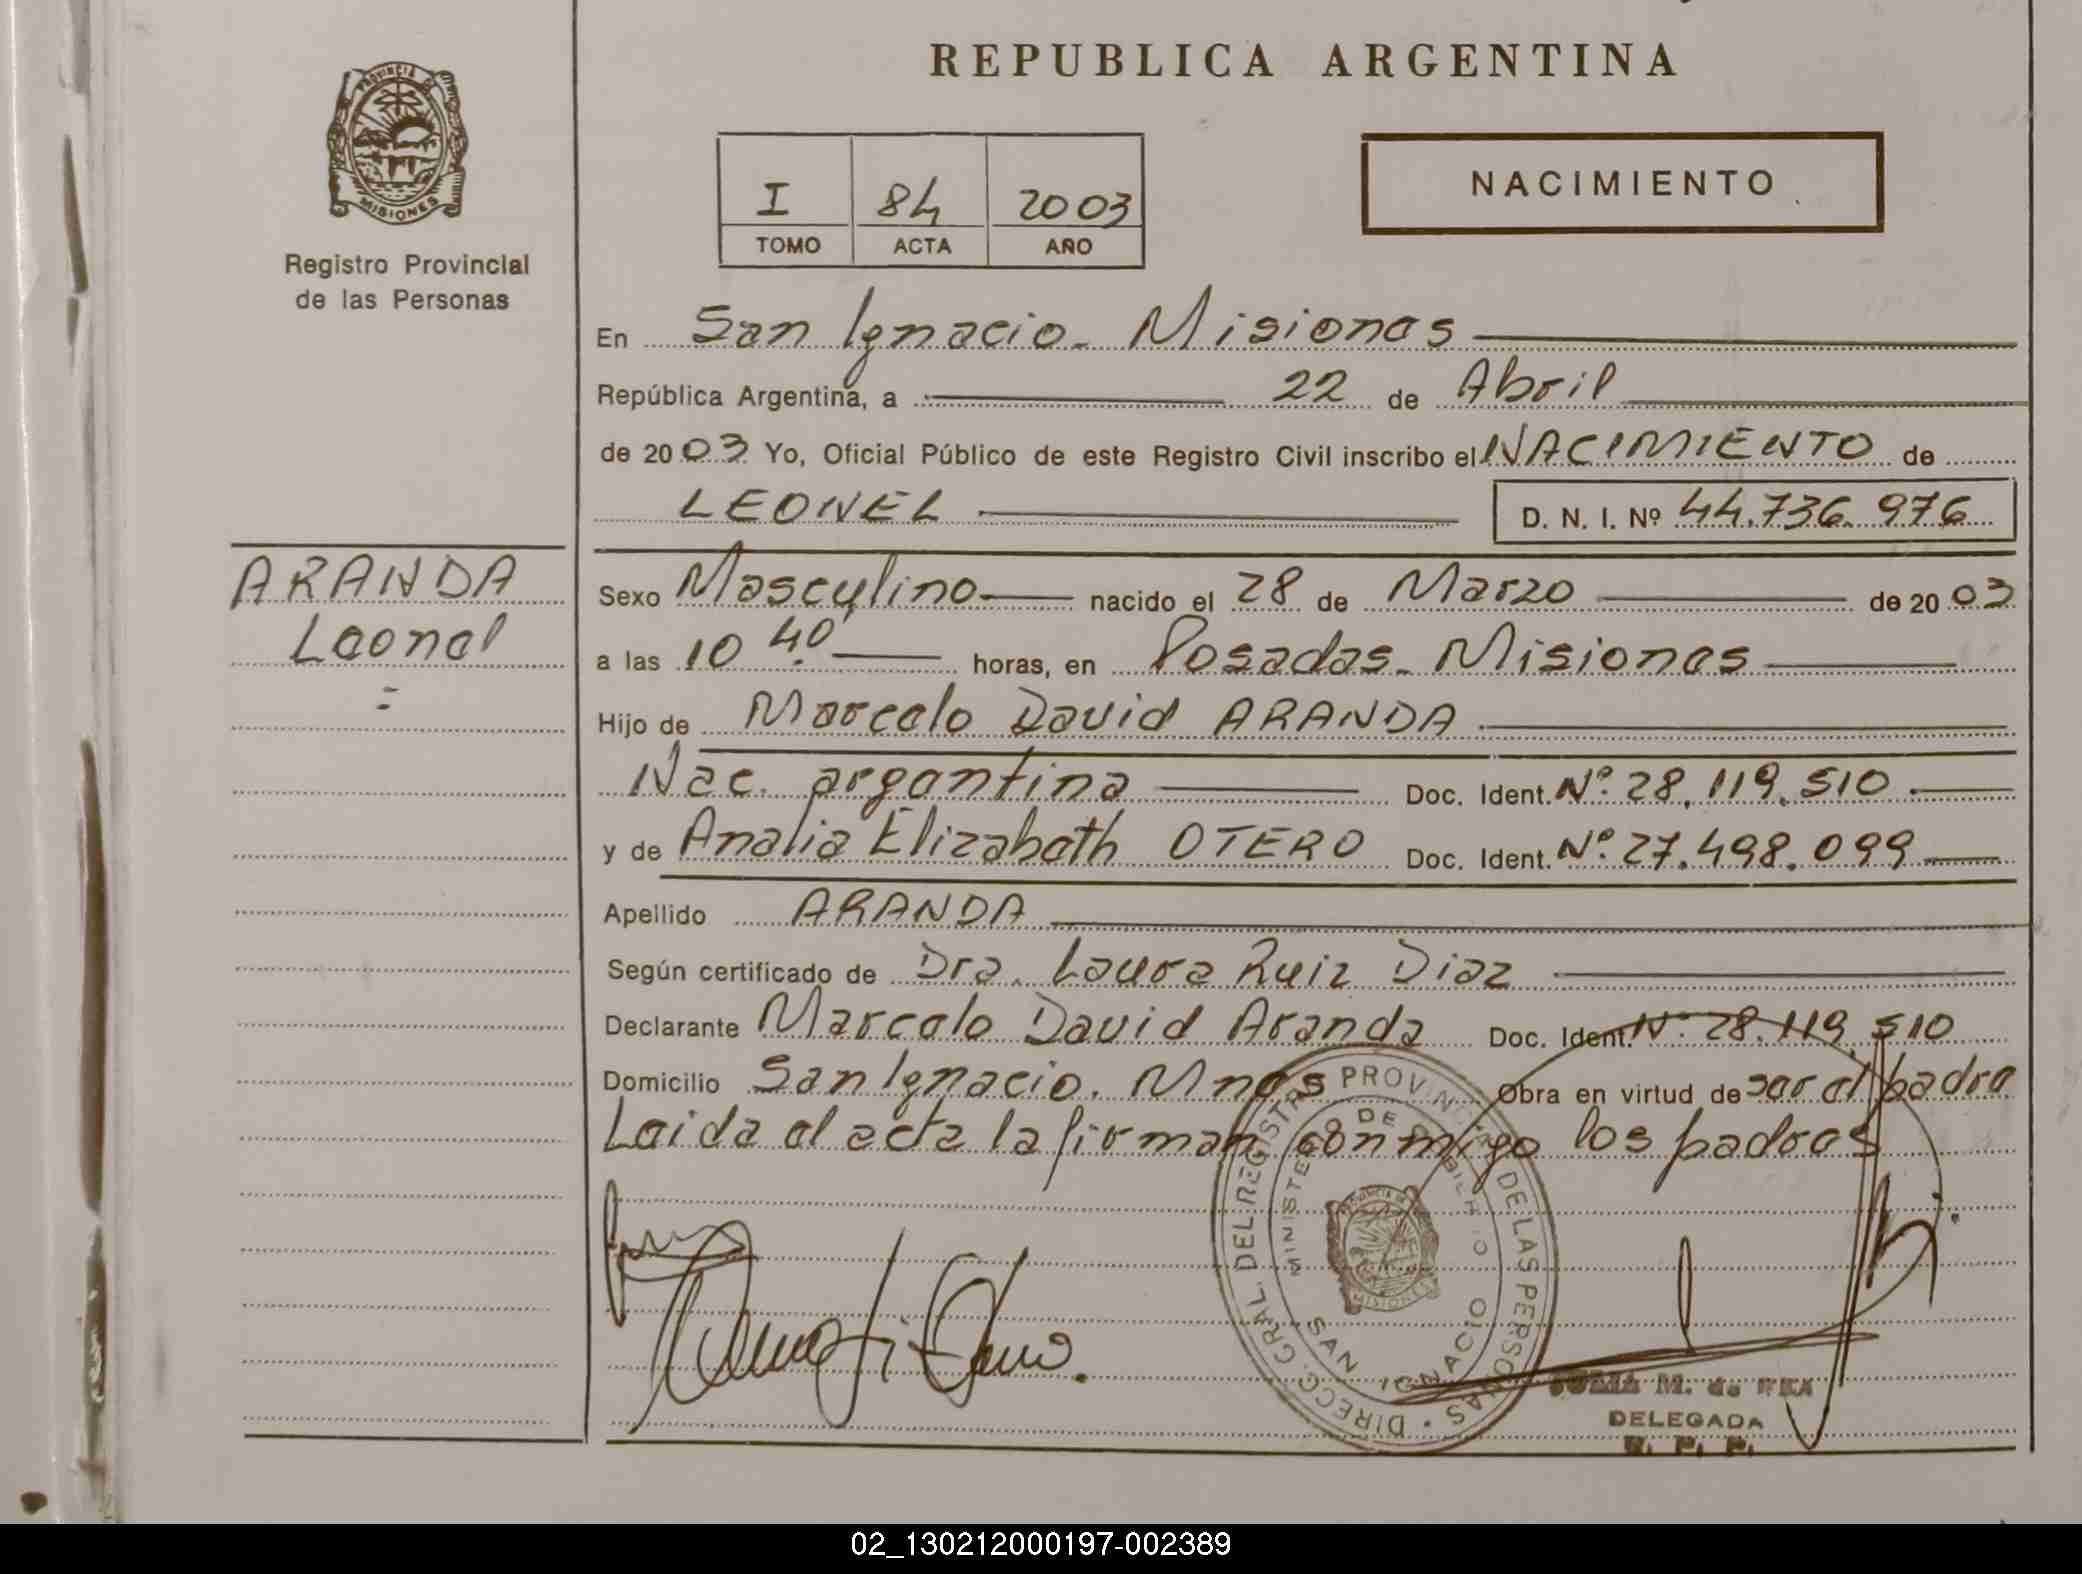 REPUBLICA ARGENTINA
PROVINCIA DE
MISIONES
Registro Provincial
de las Personas
I 84 2003
TOMO ACTA AÑO
NACIMIENTO
En San Ignacio - Misiones
República Argentina, a 22 de Abril
de 2003 Yo, Oficial Público de este Registro Civil inscribo el NACIMIENTO de
LEONEL D. N. I. Nº 44.736.976
ARANDA
Leonel
Sexo Masculino nacido el 28 de Marzo de 2003
a las 10 40 horas, en Posadas - Misiones
Hijo de Marcelo David ARANDA
Nac. argentina Doc. Ident. Nº 28.119.510
y de Analia Elizabeth OTERO Doc. Ident. Nº 27.498.099
Apellido ARANDA
Según certificado de Dra. Laura Ruiz Diaz
Declarante Marcelo David Aranda Doc. Ident. Nº 28.119.510
Domicilio San Ignacio. Mnes Obra en virtud de ser el padre
Leida el acta la firman conmigo los padres
DIRECC. GRAL. DEL REGISTRO PROVINCIAL DE LAS PERSONAS
MINISTERIO DE GOBIERNO
SAN IGNACIO
MISIONES
M. de
DELEGADA
R. P. P.
02_130212000197-002389